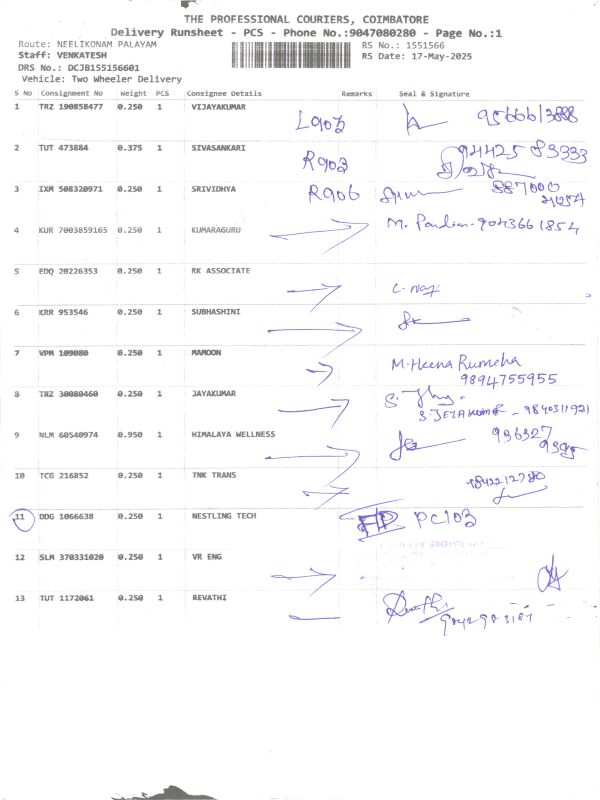 THE PROFESSIONAL COURIERS, COIMBATORE
Delivery Runsheet - PCS - Phone No.:9047080280 - Page No.:1
Route: NEELIKONAM PALAYAM RS No.: 1551566
Staff: VENKATESH RS Date: 17-May-2025
DRS No.: DCJB155156601
Vehicle: Two Wheeler Delivery
S No Consignment No Weight PCS Consignee Details Remarks Seal & Signature
1 TRZ 190858477 0.250 1 VIJAYAKUMAR
L903
2 TUT 473884 0.375 1 SIVASANKARI 94425 83333
R903
3 IXM 508320971 0.250 1 SRIVIDHYA R906 887000
4 KUR 7003859165 0.250 1 KUMARAGURU M. Pandian-9043661854
5 EDQ 20226353 0.250 1 RK ASSOCIATE
6 KRR 953546 0.250 1 SUBHASHINI
7 VPM 109080 0.250 1 MAMOON M.Heena Rumeha
9894755955
8 TRZ 30080460 0.250 1 JAYAKUMAR
S.JEYAKUMAR - 9840311921
9 NLM 60540974 0.950 1 HIMALAYA WELLNESS 936327
10 TCG 216852 0.250 1 TNK TRANS 9842212780
11 DDG 1066638 0.250 1 NESTLING TECH PC103
12 SLM 370331020 0.250 1 VR ENG
13 TUT 1172061 0.250 1 REVATHI Revathi
9842983187